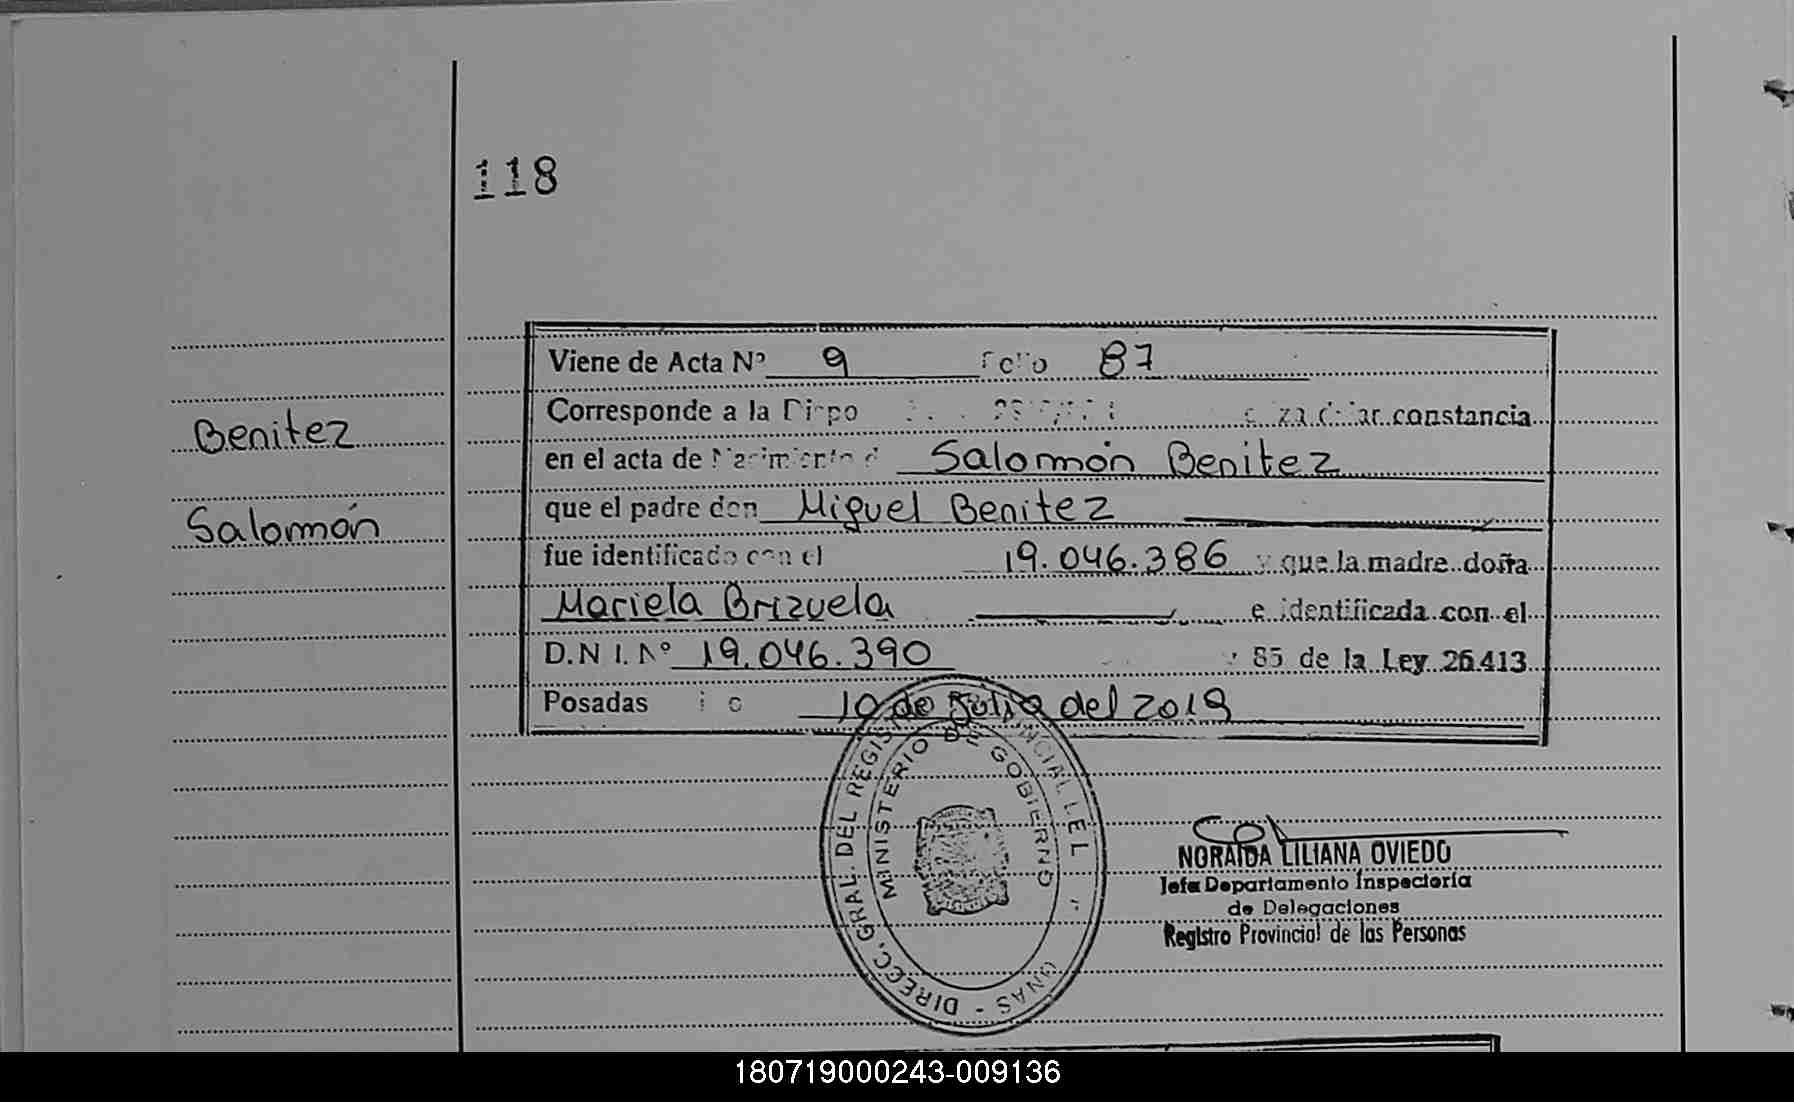 118
Viene de Acta Nº 9 Folio 87
Corresponde a la constancia
Benitez
en el acta de Nacimiento d Salomón Benitez
que el padre don Miguel Benitez
Salomón
fue identificado con el 19.046.386 y que la madre doña
Mariela Brizuela e identificada con el
D.N I. Nº 19.046.390 85 de la Ley 26.413
Posadas 10 de Julio del 2019
DIRECC. GRAL. DEL REGIS
MINISTERIO DE GOBIERNO
NORAIDA LILIANA OVIEDO
Jefa Departamento Inspectoría
de Delegaciones
Registro Provincial de las Personas
180719000243-009136